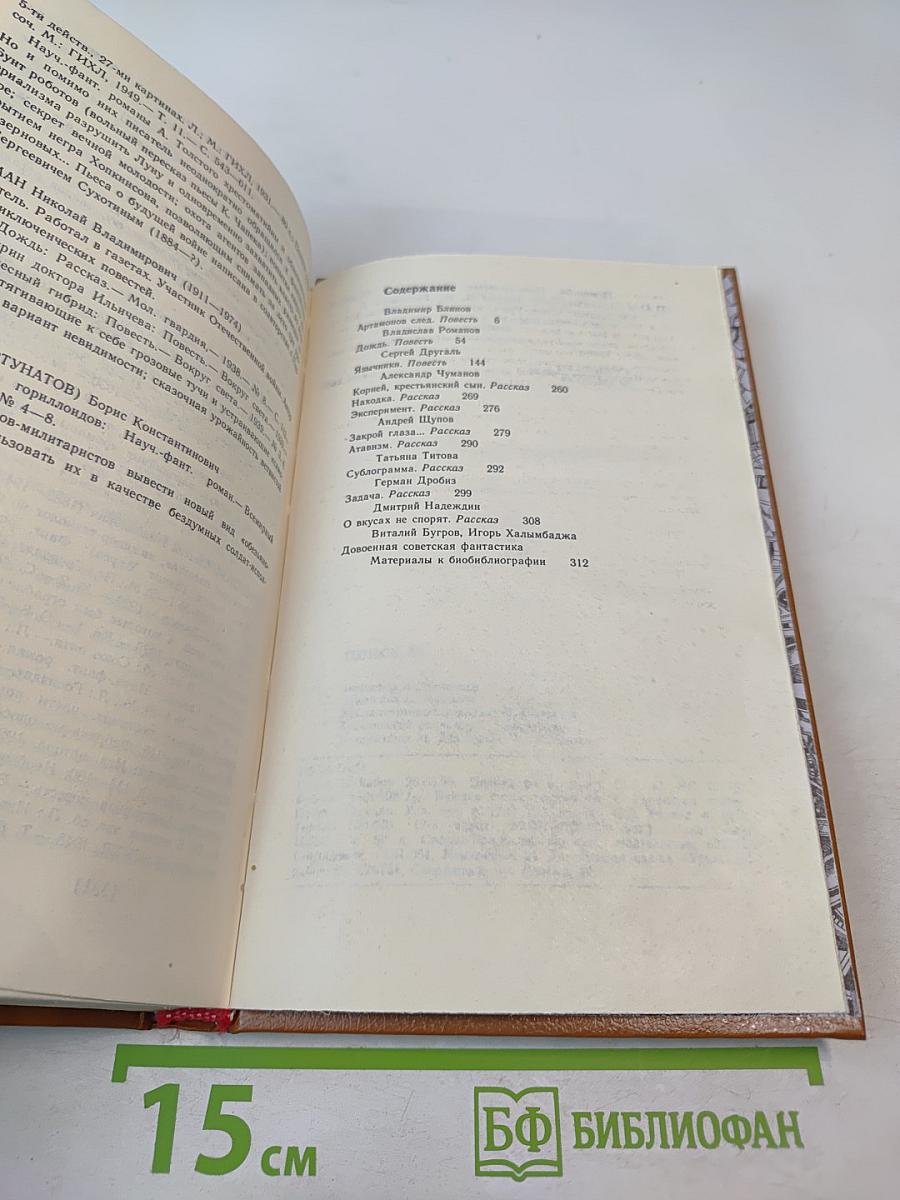 5-ти действ., 27-ми картинах. Л.; М.: ГИХЛ, 1931.—
соч. М.: ГИХЛ, 1949.— Т. 11.— С. 543—611.
Науч.-фант. романы А. Толстого хрестоматийны
Но и помимо них писатель неоднократно обращался к
Бунт роботов (вольный пересказ пьесы К. Чапека);
ериализма разрушить Луну и одновременно
ре; секрет вечной молодости; охота агентов западных
рытием негра Хопкинсона, позволяющим
зерновых... Пьеса о будущей войне написана в
ергеевичем Сухотиным (1884—?).
МАН Николай Владимирович (1911—1974)
тель. Работал в газетах. Участник Отечественной войны. Автор
иключенческих повестей.
Дождь: Рассказ.— Мол. гвардия,— 1938,— № 8.— С.
рин доктора Ильичева: Повесть.— Вокруг света.—
есный гибрид: Повесть.— Вокруг света.— 1939.—
тягивающие к себе грозовые тучи и устраивающие
вариант невидимости; сказочная урожайность
ТУНАТОВ) Борис Константинович
гориллоидов: Науч.-фант. роман.— Всемирный
№ 4—8.
ов-милитаристов вывести новый вид «обезьяно-
ьзовать их в качестве бездумных солдат-
Содержание
Владимир Блинов
Артамонов след. Повесть 6
Владислав Романов
Дождь. Повесть 54
Сергей Другаль
Язычники. Повесть 144
Александр Чуманов
Корней, крестьянский сын. Рассказ 260
Находка. Рассказ 269
Эксперимент. Рассказ 276
Андрей Щупов
Закрой глаза... Рассказ 279
Атавизм. Рассказ 290
Татьяна Титова
Сублограмма. Рассказ 292
Герман Дробиз
Задача. Рассказ 299
Дмитрий Надеждин
О вкусах не спорят. Рассказ 308
Виталий Бугров, Игорь Халымбаджа
Довоенная советская фантастика
Материалы к биобиблиографии 312
15 см
БФ БИБЛИОФАН